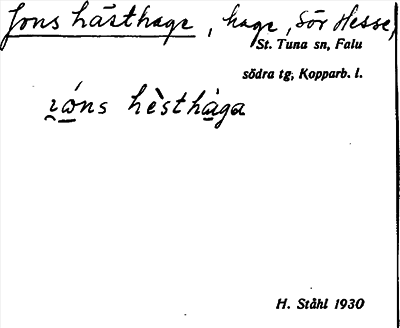 Jons hästhage, hage, Sör Hesse,
St. Tuna sn, Falu
södra tg, Kopparb. l.
ɩ̯ó̠ns hèsthà̠ga
H. Ståhl 1930